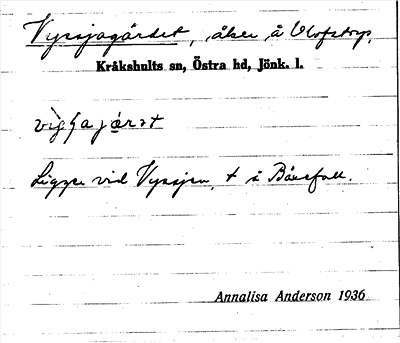 Vyssjagärdet, åker å Olofstorp,
Kråkshults sn, Östra hd, Jönk. l.
Ligger vid Vyssjen, t i Båxefall.
Annalisa Anderson 1936